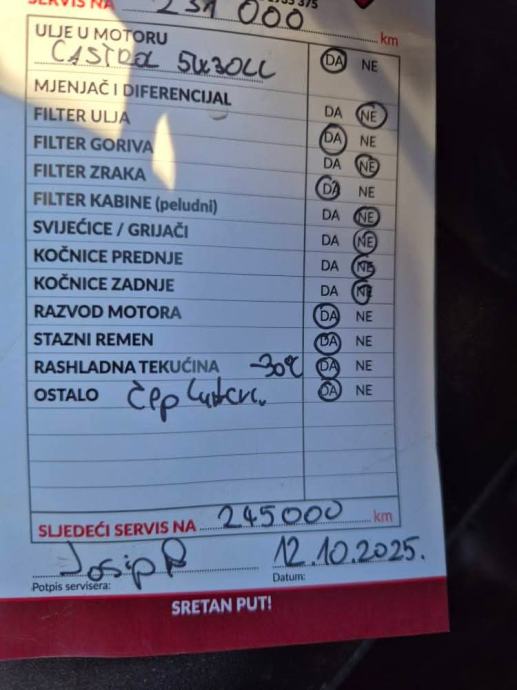 SERVIS NA 231 000 km
ULJE U MOTORU
CASTROL 5W30LL DA NE
MJENJAČ I DIFERENCIJAL DA NE
FILTER ULJA DA NE
FILTER GORIVA DA NE
FILTER ZRAKA DA NE
FILTER KABINE (peludni) DA NE
SVIJEĆICE / GRIJAČI DA NE
KOČNICE PREDNJE DA NE
KOČNICE ZADNJE DA NE
RAZVOD MOTORA DA NE
STAZNI REMEN DA NE
RASHLADNA TEKUĆINA -30°C DA NE
OSTALO Čep
SLJEDEĆI SERVIS NA 245000 km
Josip P 12.10.2025.
Potpis servisera: Datum:
SRETAN PUT!